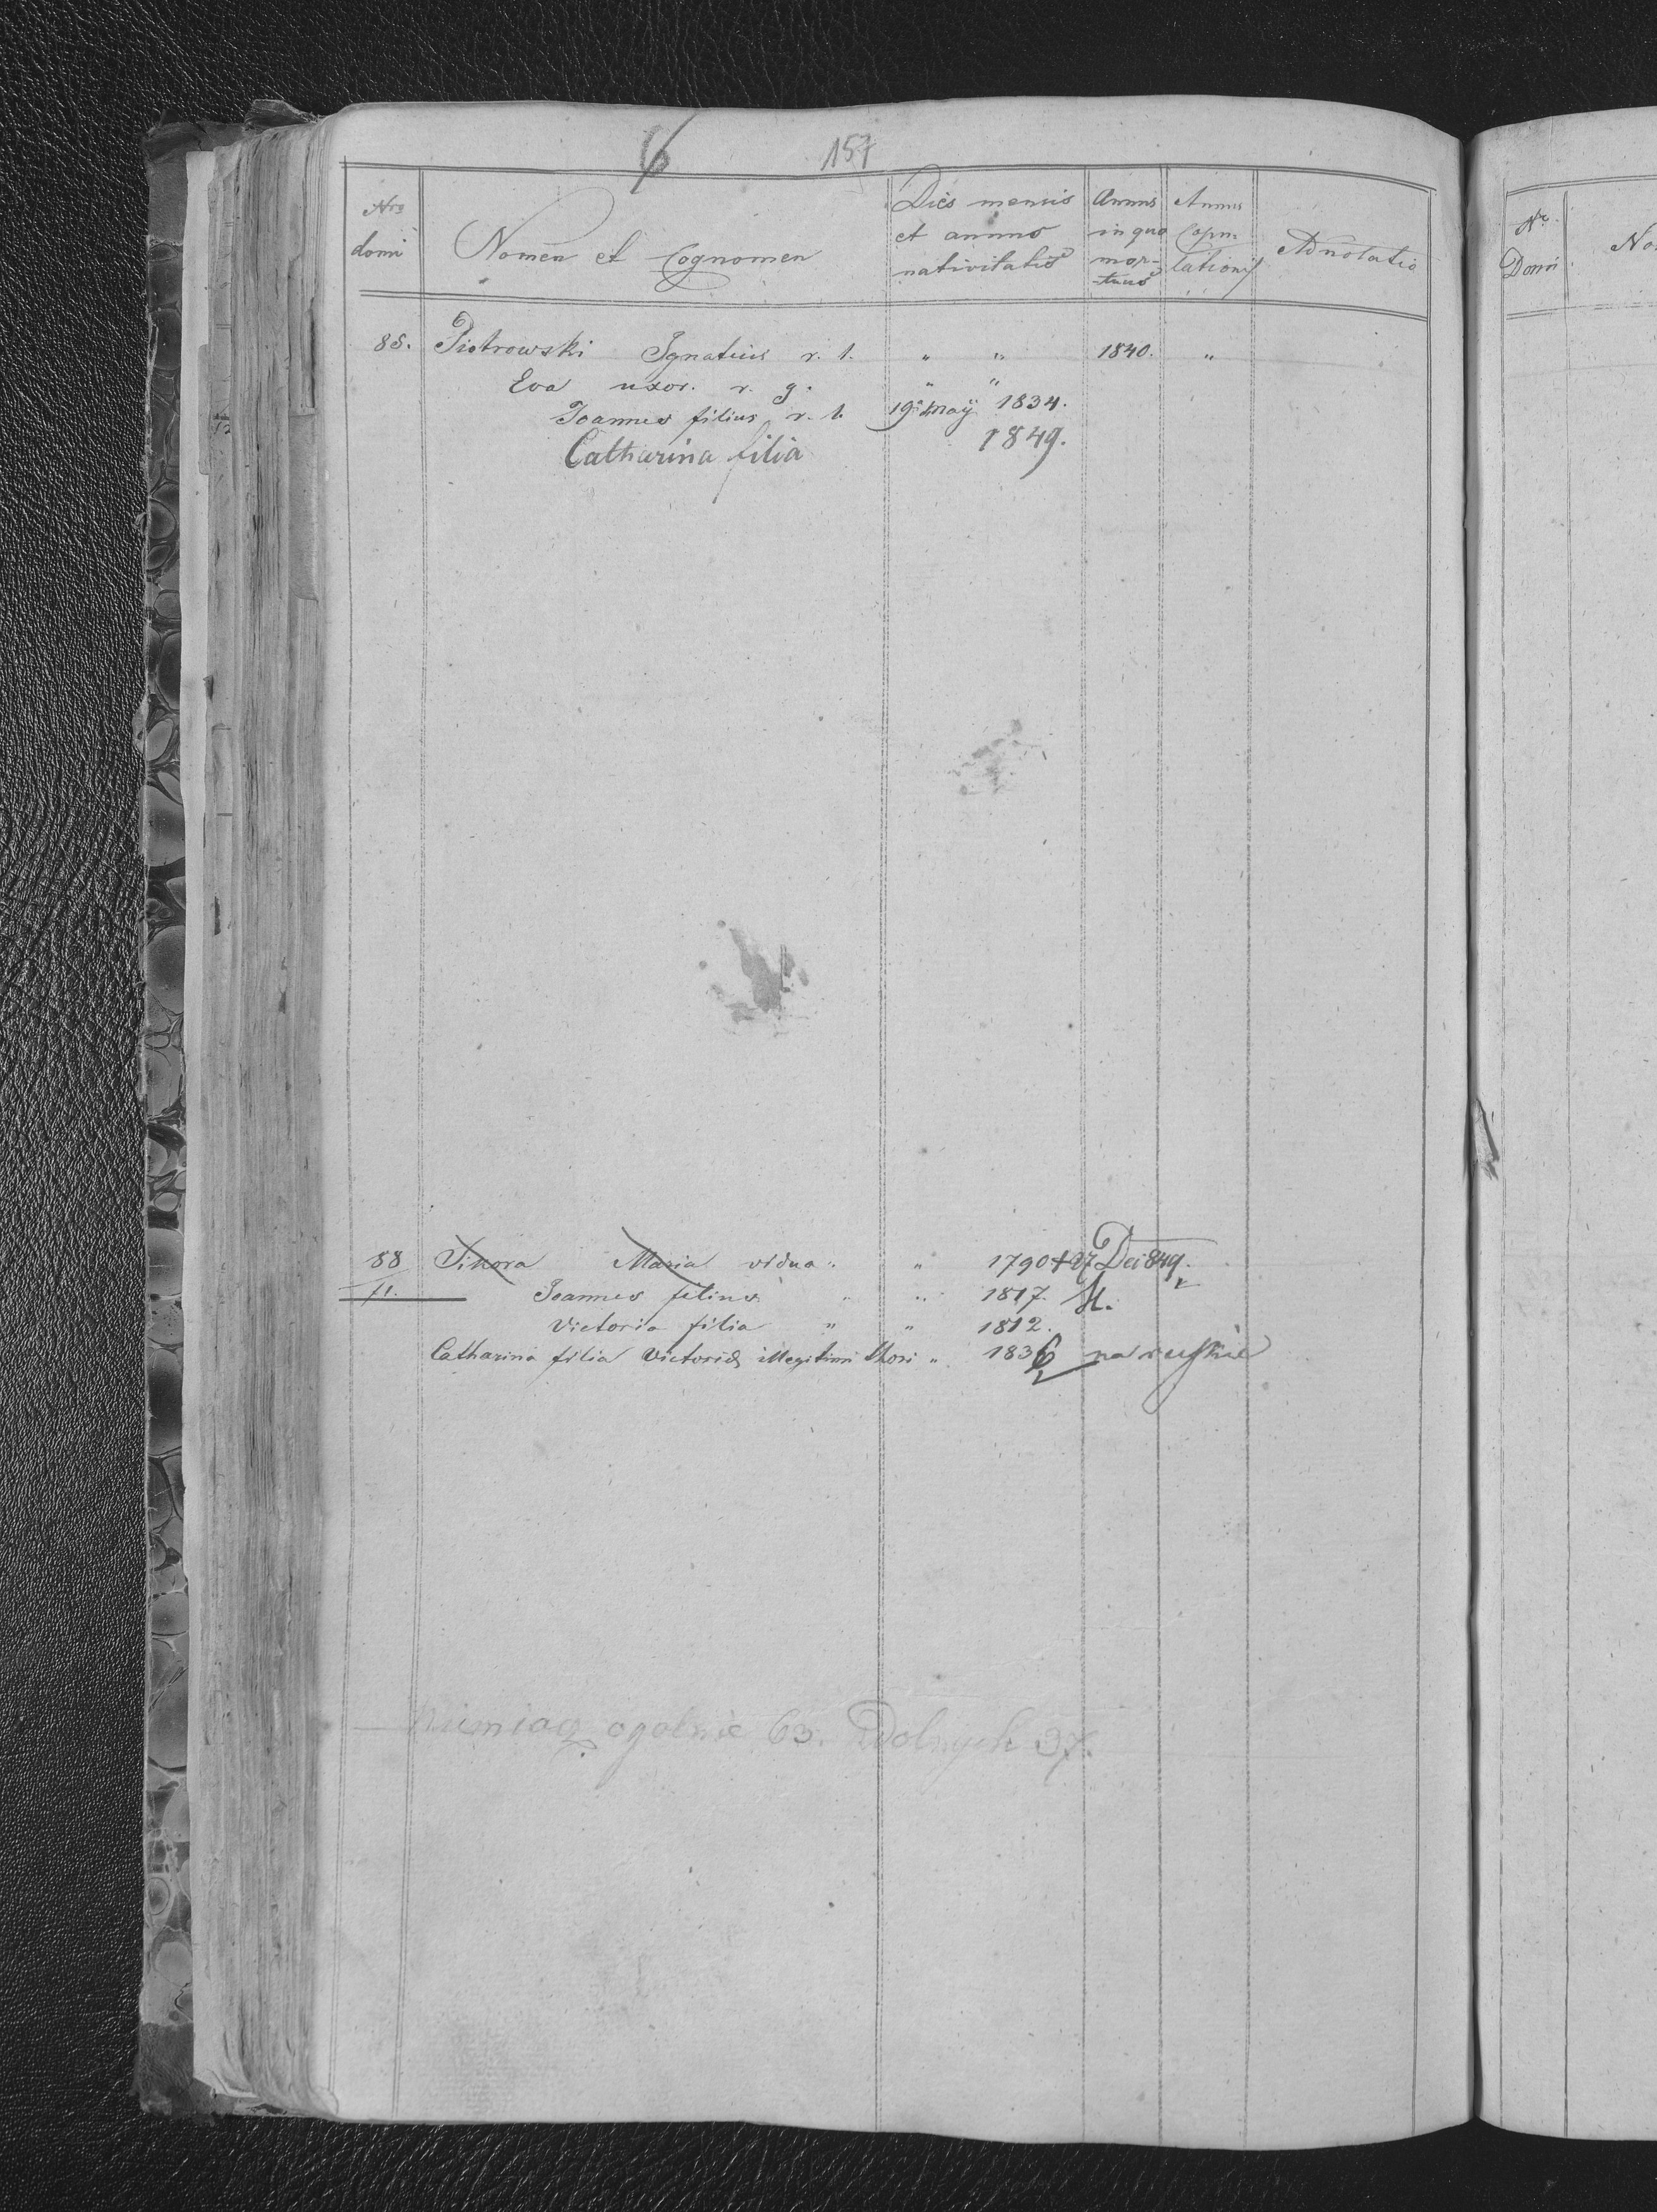 6 157
Nro domi Nomen et Cognomen Dies mensis et annus nativitatis Annus in quo mor-tuus Annus Copu-lationis Adnotatio
85. Piotrowski Ignatius r. l. " " 1840. "
Eva uxor. r. g. " "
Joannes filius r. l. 19a Maÿ 1834.
Catharina filia 1849.
88 Sikora Maria vidua " " 1790 + 27 Dei 849.
11. Joannes filius " " 1817. H.
Victoria filia " " 1812.
Catharina filia Victoriæ illegitimi thori " 1836
ogolnie 63. 37.
Nro Domi No